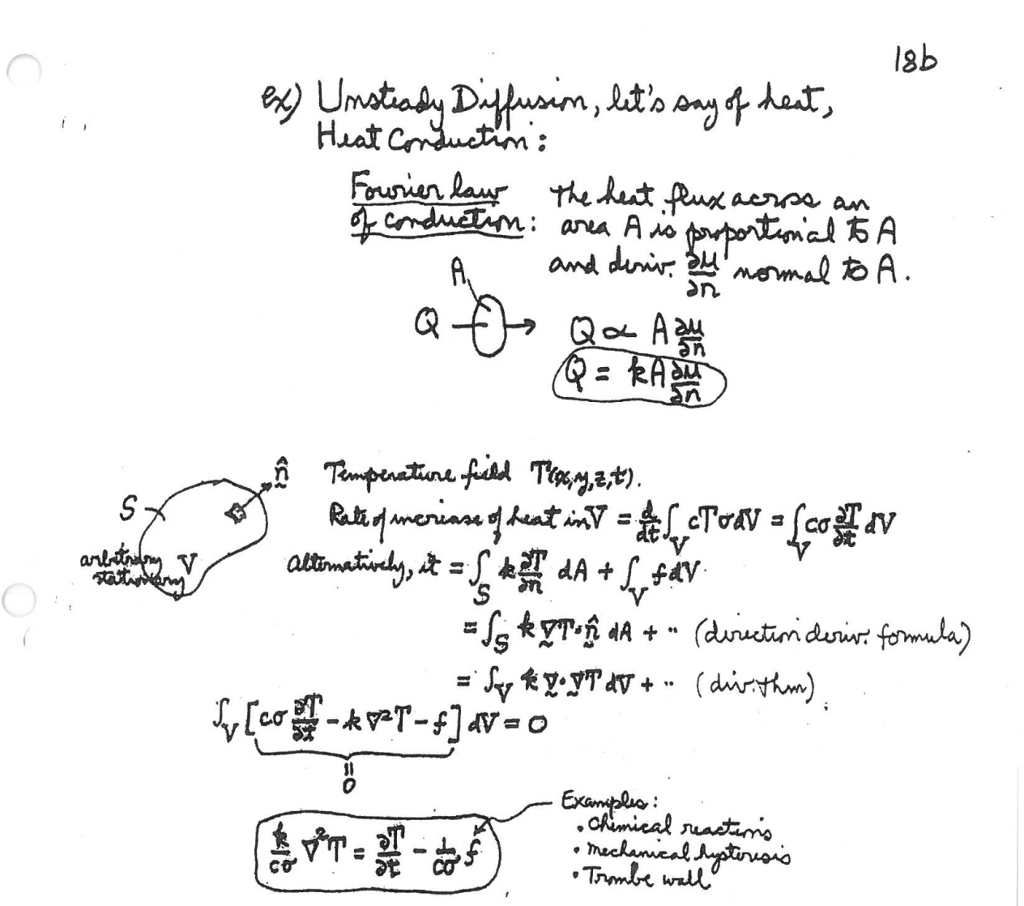 18b
ex) Unsteady Diffusion, let's say of heat,
Heat Conduction:
Fourier law of conduction: The heat flux across an
area A is proportional to A
and deriv. ∂u/∂n normal to A.
A
Q → Q ∝ A ∂u/∂n
Q = kA ∂u/∂n
n̂ Temperature field T(x,y,z,t).
S Rate of increase of heat in V = d/dt ∫_V cTσdV = ∫_V cσ ∂T/∂t dV
arbitrary stationary V Alternatively, it = ∫_S k ∂T/∂n dA + ∫_V f dV
= ∫_S k ∇T·n̂ dA + ·· (direction deriv. formula)
= ∫_V k ∇·∇T dV + ·· (div. thm).
∫_V [cσ ∂T/∂t - k ∇²T - f] dV = 0
=
0
k/cσ ∇²T = ∂T/∂t - 1/cσ f
Examples:
• Chemical reactions
• Mechanical hysteresis
• Trombe wall